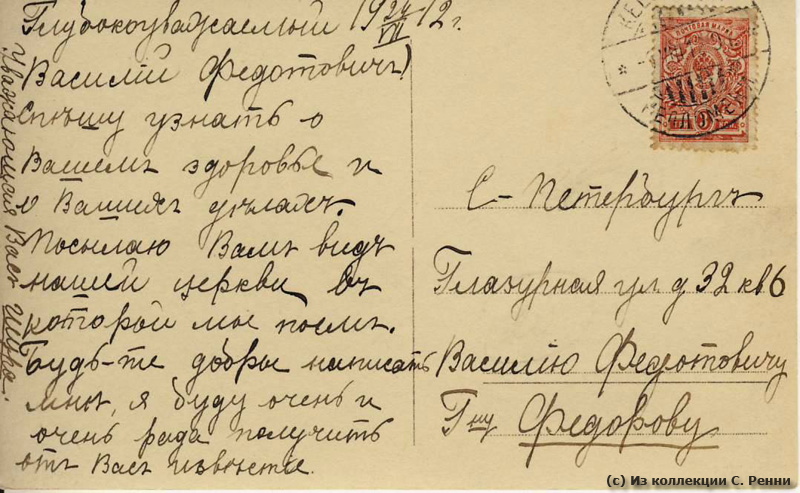 Глубокоуважаемый 19 24/VII 12 г.
Василій Федотовичъ)
Спѣшу узнать о
Вашемъ здоровье и
о Вашихъ дѣлахъ.
Посылаю Вамъ видъ
нашей церкви въ
которой мы поемъ.
Будь-те добры написать
мнѣ, я буду очень и
очень рада получить
отъ Васъ извѣстіе.
Уважающая Васъ Шура.
С-Петербургъ
Глазурная ул д 32 кв 6
Василію Федотовичу
Гну Федорову
(c) Из коллекции С. Ренни